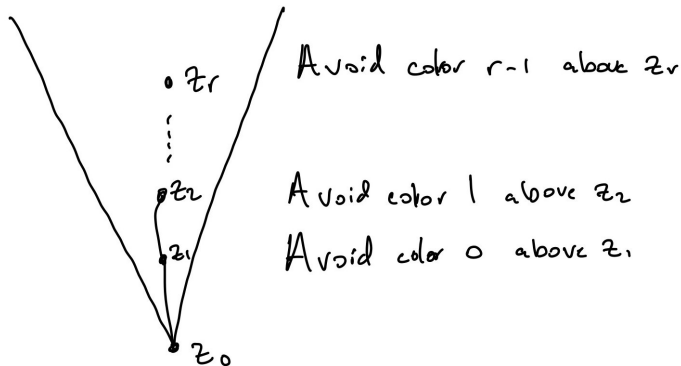 Zr Avoid color r-1 above Zr
Z2 Avoid color 1 above Z2
Z1 Avoid color 0 above Z1
Z0